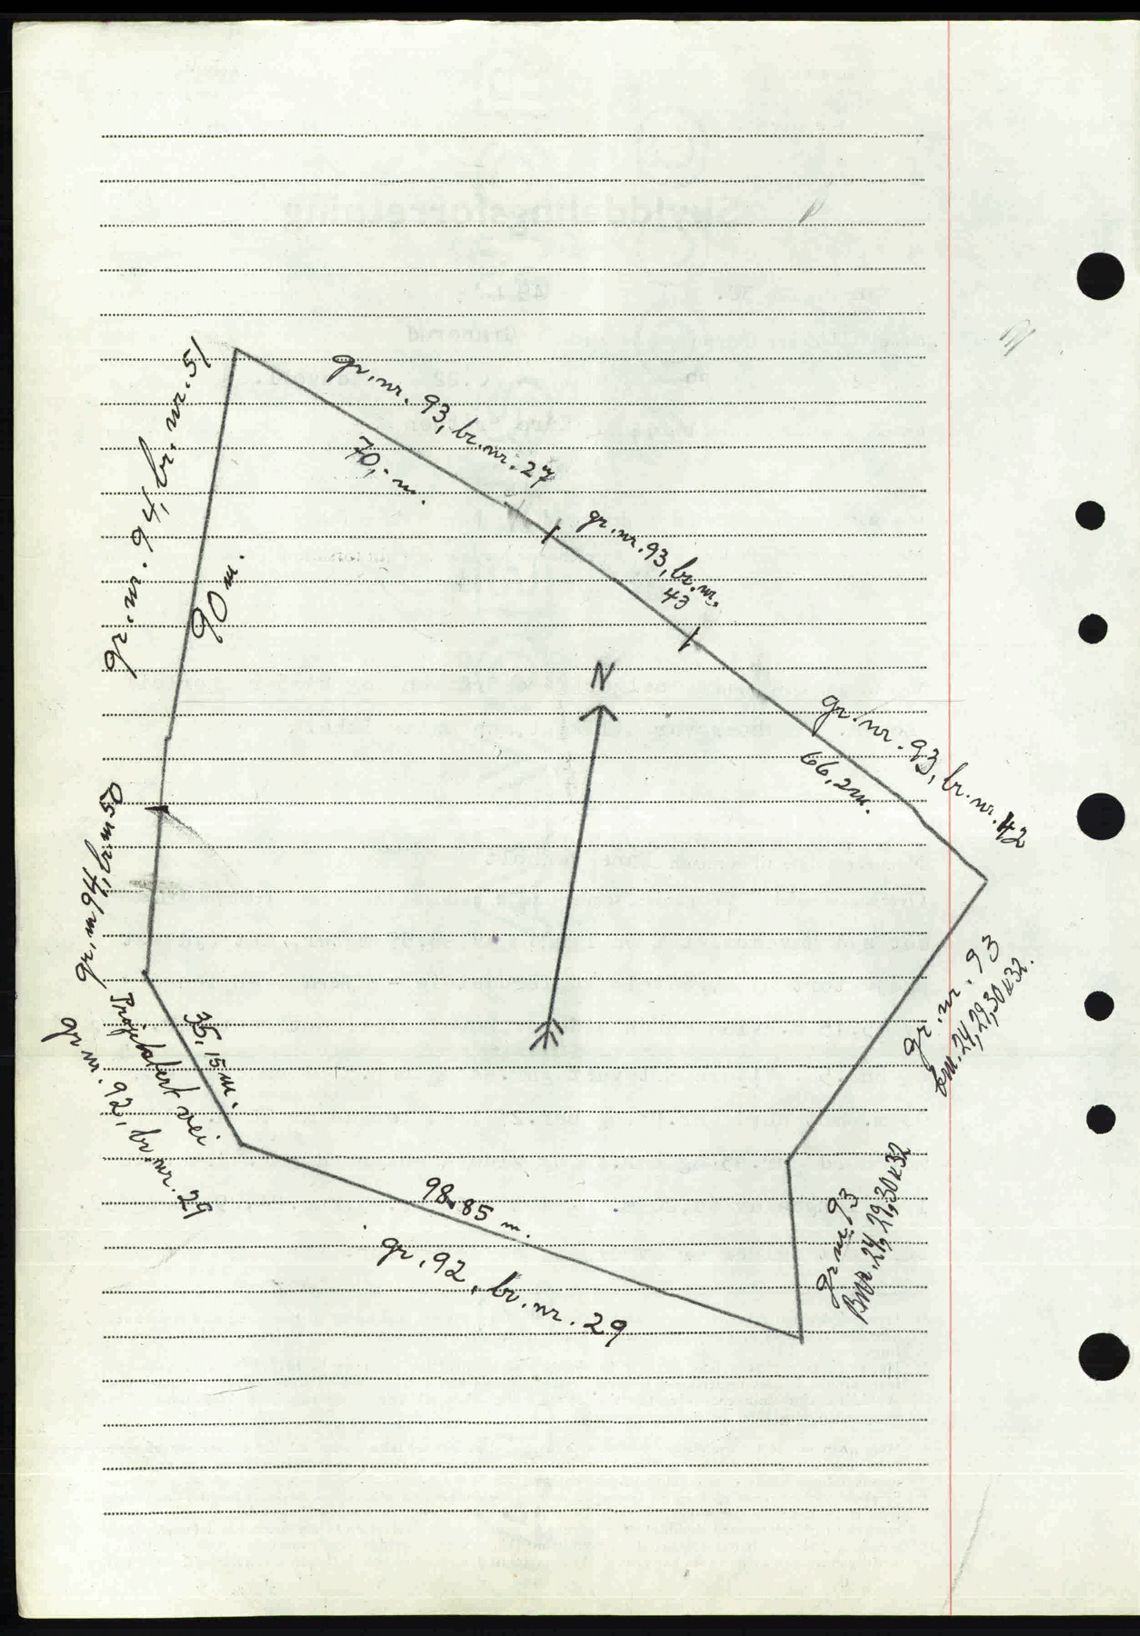 gr.nr. 94, br. nr. 51
90 m.
gr.nr. 93, br.nr. 27
70,- m.
gr.nr. 93, br.nr.
43
N
gr.nr. 93, br.nr. 42
66,2 m.
gr.nr 94, br.nr 50
35,15 m.
Prosjektert vei
gr.nr. 92, br.nr. 29
98.85 m.
gr. 92, br.nr. 29
gr.nr. 93
bnr. 24, 29, 30 & 32.
gr.nr. 93
Bnr. 24, 29, 30 & 32